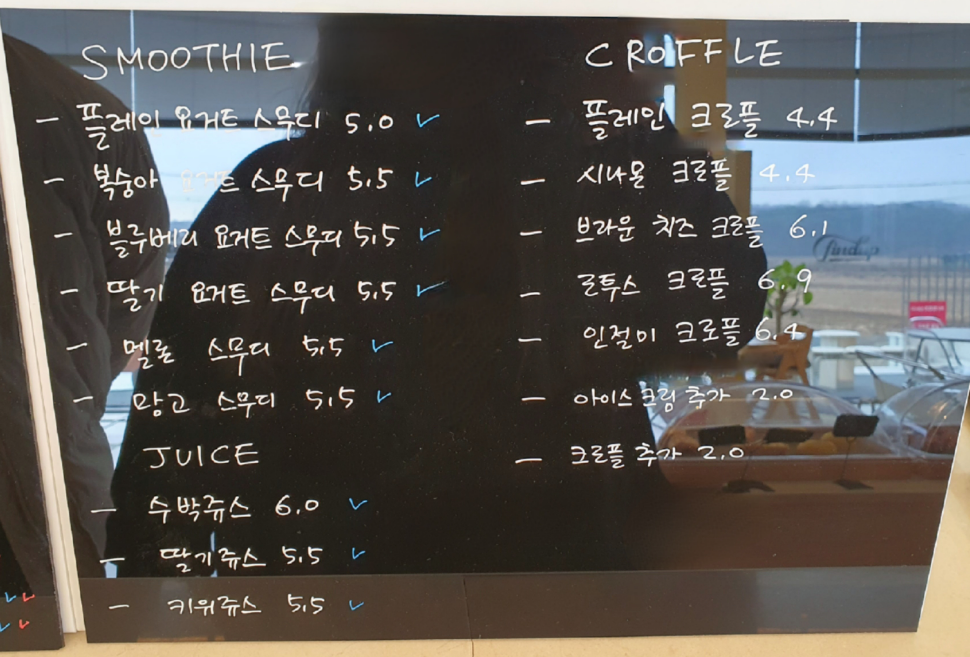 SMOOTHIE
- 플레인 요거트 스무디 5.0 ✓
- 복숭아 요거트 스무디 5.5 ✓
- 블루베리 요거트 스무디 5.5 ✓
- 딸기 요거트 스무디 5.5 ✓
- 멜론 스무디 5.5 ✓
- 망고 스무디 5.5 ✓
JUICE
- 수박쥬스 6.0 ✓
- 딸기쥬스 5.5 ✓
- 키위쥬스 5.5 ✓
CROFFLE
- 플레인 크로플 4.4
- 시나몬 크로플 4.4
- 브라운 치즈 크로플 6.1
- 로투스 크로플 6.9
- 인절미 크로플 6.4
- 아이스크림 추가 2.0
- 크로플 추가 2.0